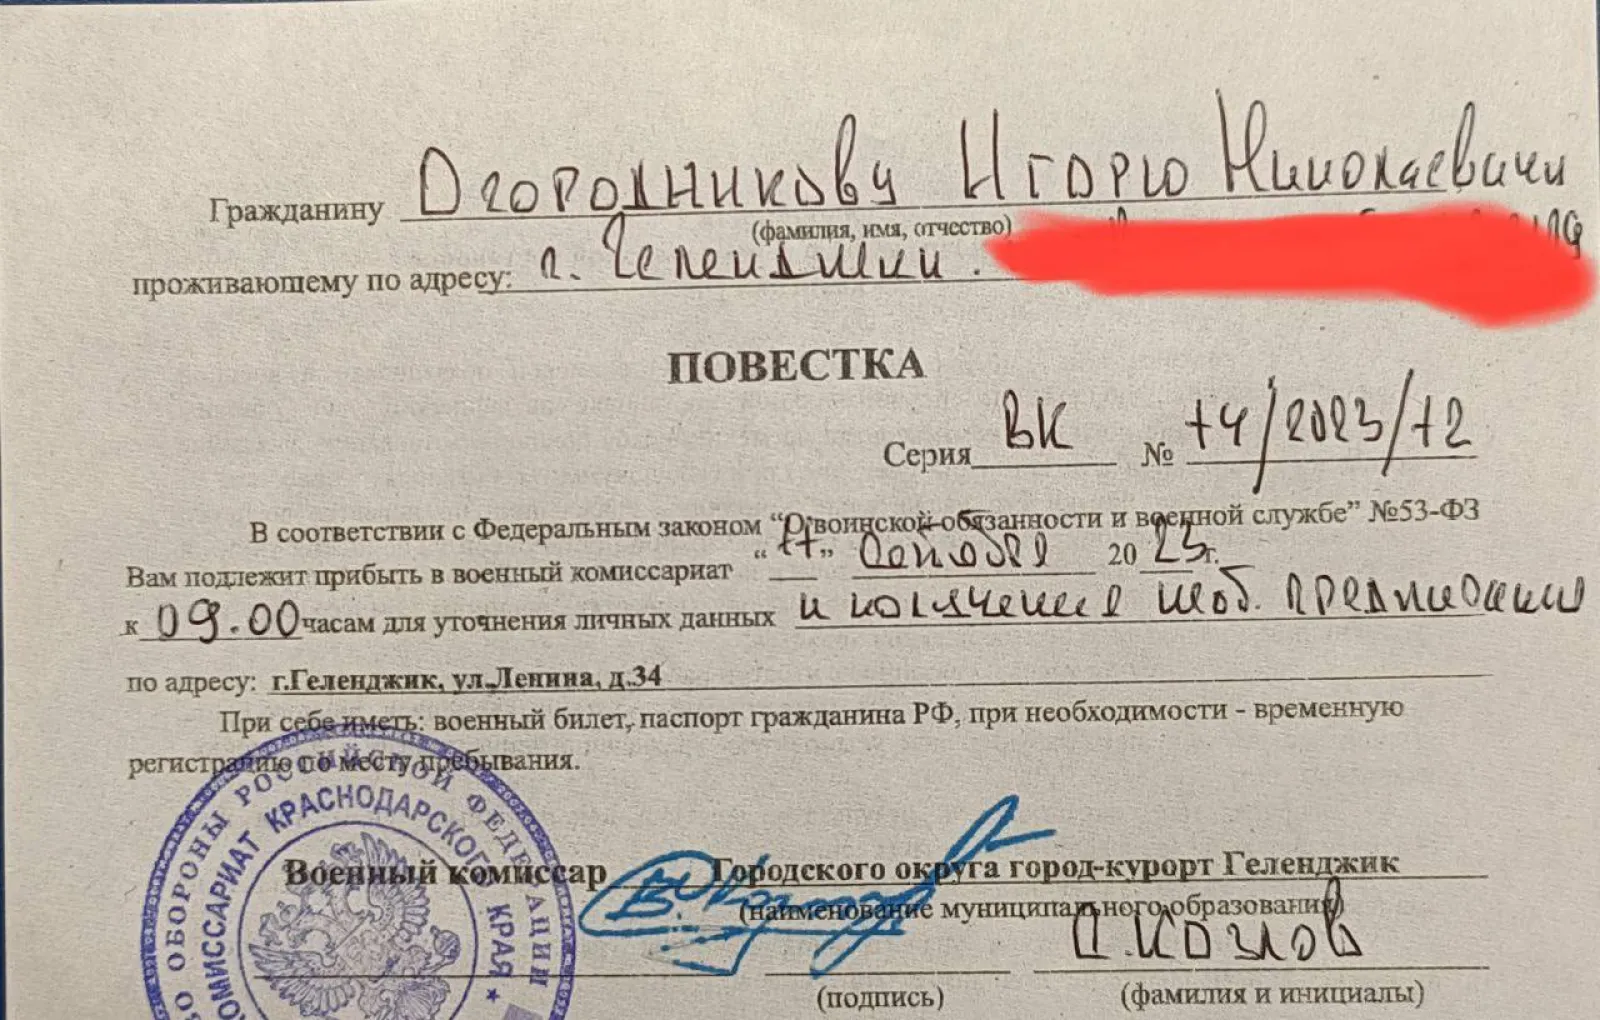 Гражданину Огородникову Игорю Николаевичу
(фамилия, имя, отчество)
проживающему по адресу: г. Геленджик
ПОВЕСТКА
Серия ВК № 14/2023/12
В соответствии с Федеральным законом “О воинской обязанности и военной службе” №53-ФЗ
Вам подлежит прибыть в военный комиссариат “17” октября 20 23 г.
к 09.00 часам для уточнения личных данных и получения моб. предписания
по адресу: г.Геленджик, ул.Ленина, д.34
При себе иметь: военный билет, паспорт гражданина РФ, при необходимости - временную
регистрацию по месту пребывания.
Военный комиссар Городского округа город-курорт Геленджик
(наименование муниципального образования)
Козлов
(подпись) (фамилия и инициалы)
ОБОРОНЫ РОССИЙСКОЙ ФЕДЕРАЦИИ
КОМИССАРИАТ КРАСНОДАРСКОГО КРАЯ